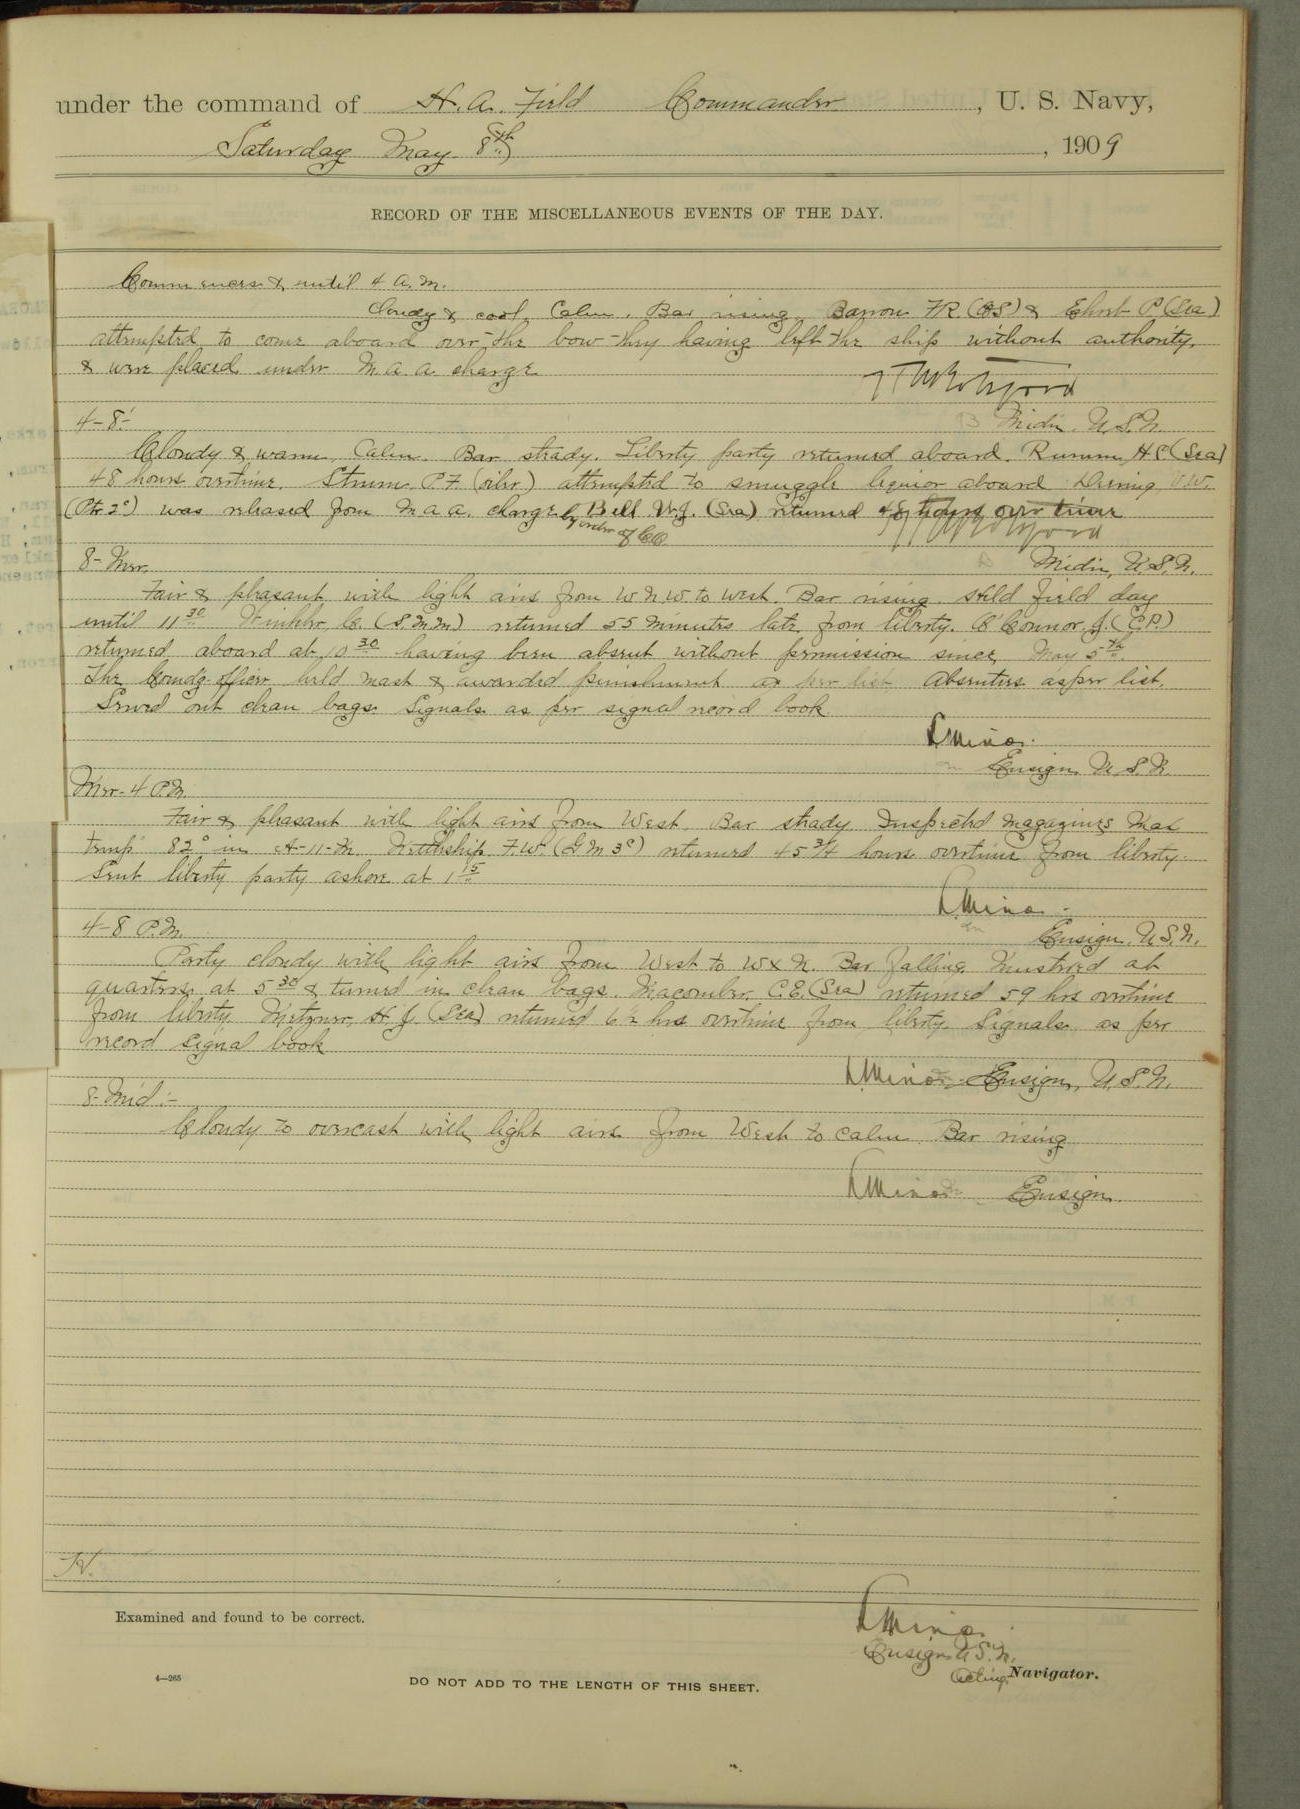 under the command of H. A. Field Commander, U. S. Navy,
Saturday May 8th, 1909
RECORD OF THE MISCELLANEOUS EVENTS OF THE DAY.
Commences & until 4 A.M.
Cloudy & cool, Calm. Bar rising. Barron F.R. (OS) & P (Sea)
attempted to come aboard over the bow they having left the ship without authority.
& were placed under M.a.a. charge
Midn. U.S.N.
4-8:-
Cloudy & warm, Calm. Bar steady. Liberty party returned aboard. H (Sea)
48 hours overtime. P.F. (oiler) attempted to smuggle liquior aboard
(Ptr 2c) was released from M.a.a. charge by order of CO Bell W.J. (Sea) returned 48 hours over time
Midn, U.S.N.
8-Mer.
Fair & pleasant with light airs from W.N.W. to West. Bar rising. Held field day
until 11 30 Winkler, C. (S.M.M) returned 55 minutes late from liberty. O'Connor, J. (C.P.)
returned aboard at 10 30 having been absent without permission since May 5th.
The Comdg. officer held mast & awarded punishment as per list Absentees as per list.
Served out clean bags. Signals as per signal record book.
L Minor.
Ensign U.S.N.
Mer-4 P.M.
Fair & pleasant with light airs from West. Bar steady Inspected magazines Max
temp 82° in A-11-M. F.W. (G.M 3c) returned 45 3/4 hours overtime from liberty.
Sent liberty party ashore at 1 15
L Minor.
Ensign, U.S.N.
4-8 P.M.
Party cloudy with light airs from West to WxN. Bar falling. Mustered at
quarters at 5 30 & turned in clean bags. Macomber, C.E. (Sea) returned 59 hrs overtime
from liberty. Metzner, H.J. (Sea) returned 6½ hrs overtime from liberty. Signals as per
record signal book
L Minor Ensign, U.S.N.
8-Mid:-
Cloudy to overcast with light airs from West to calm. Bar rising
L Minor Ensign.
Examined and found to be correct.
L Minor
Ensign U.S.N.
Acting Navigator.
4—265
DO NOT ADD TO THE LENGTH OF THIS SHEET.